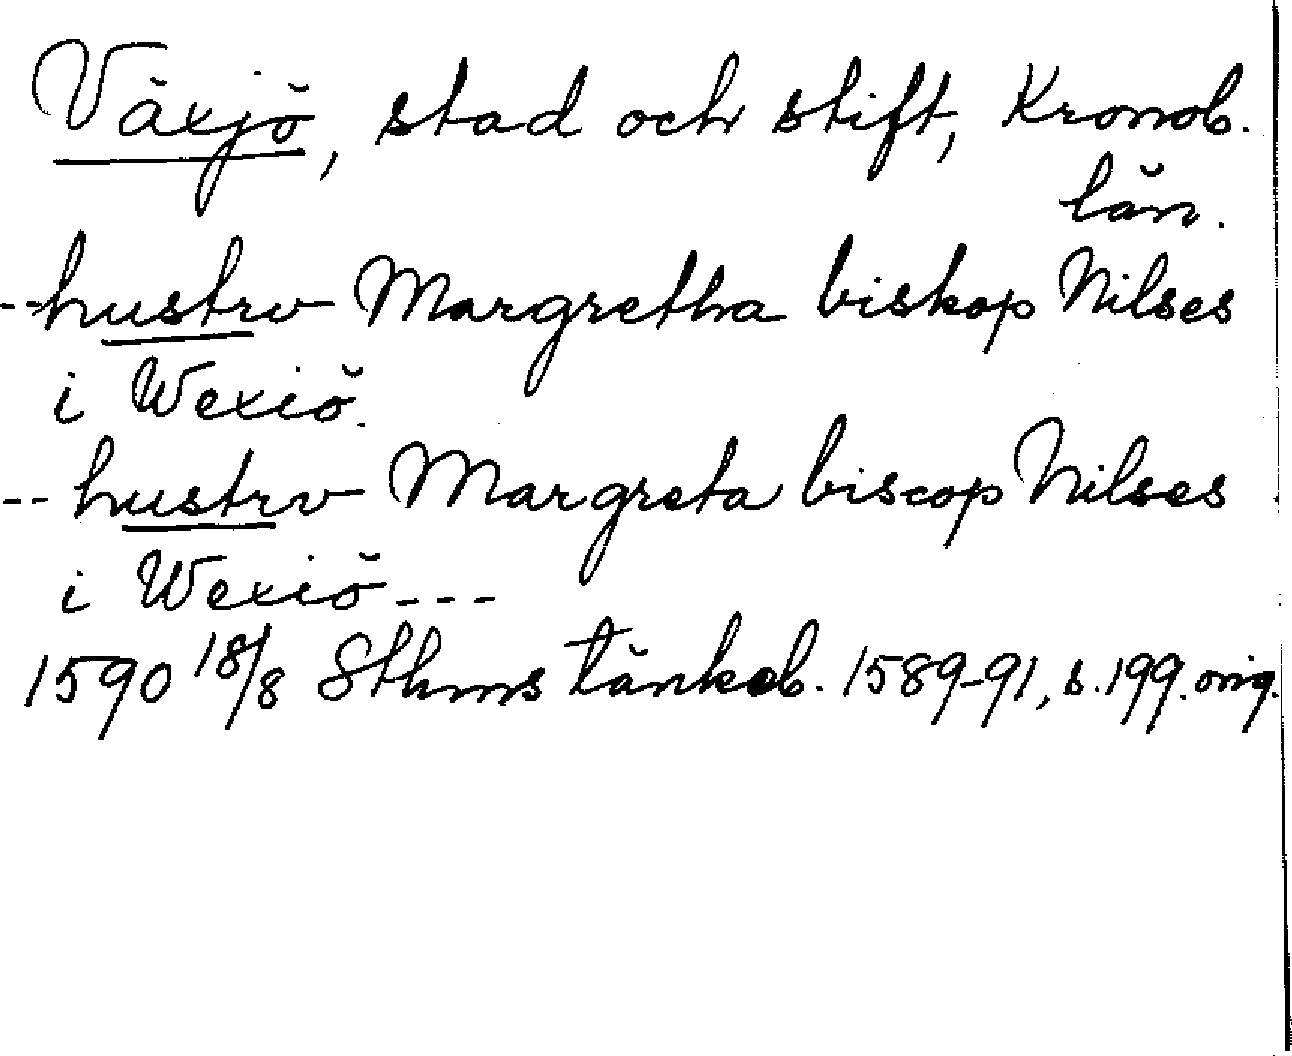 Växjö, stad och stift, Kronob.
län.
--hustrv Margretha biskop Nilses
i Wexiö.
-- hustrv Margreta biscop Nilses
i Wexiö---
1590 18/8 Sthms tänkeb. 1589-91, s. 199. orig.